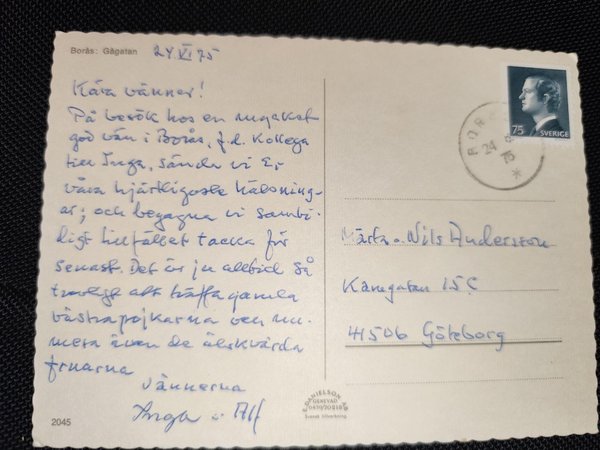 Borås: Gågatan
24 VI 75
Kära vänner!
På besök hos en mycket
god vän i Borås, f.d. Kollega
till Inga, sända vi Er
våra hjärtligaste hälsning-
ar; och begagna vi samti-
digt tillfället tacka för
senast. Det är ju alltid så
trevligt att träffa gamla
västrapojkarna och nu-
mera även de älskvärda
fruarna
Vännerna
Inga o Alf
2045
E. DANIELSON AB
GENEVAD
Svensk tillverkning
75 SVERIGE
BORÅS
24 6
75
Märta o. Nils Andersson
Kanegatan 15 C
41506 Göteborg